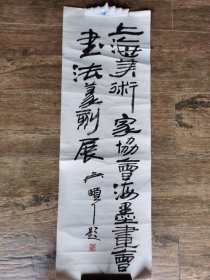 上海美術家協會海墨畫會
書法篆刻展
頤題